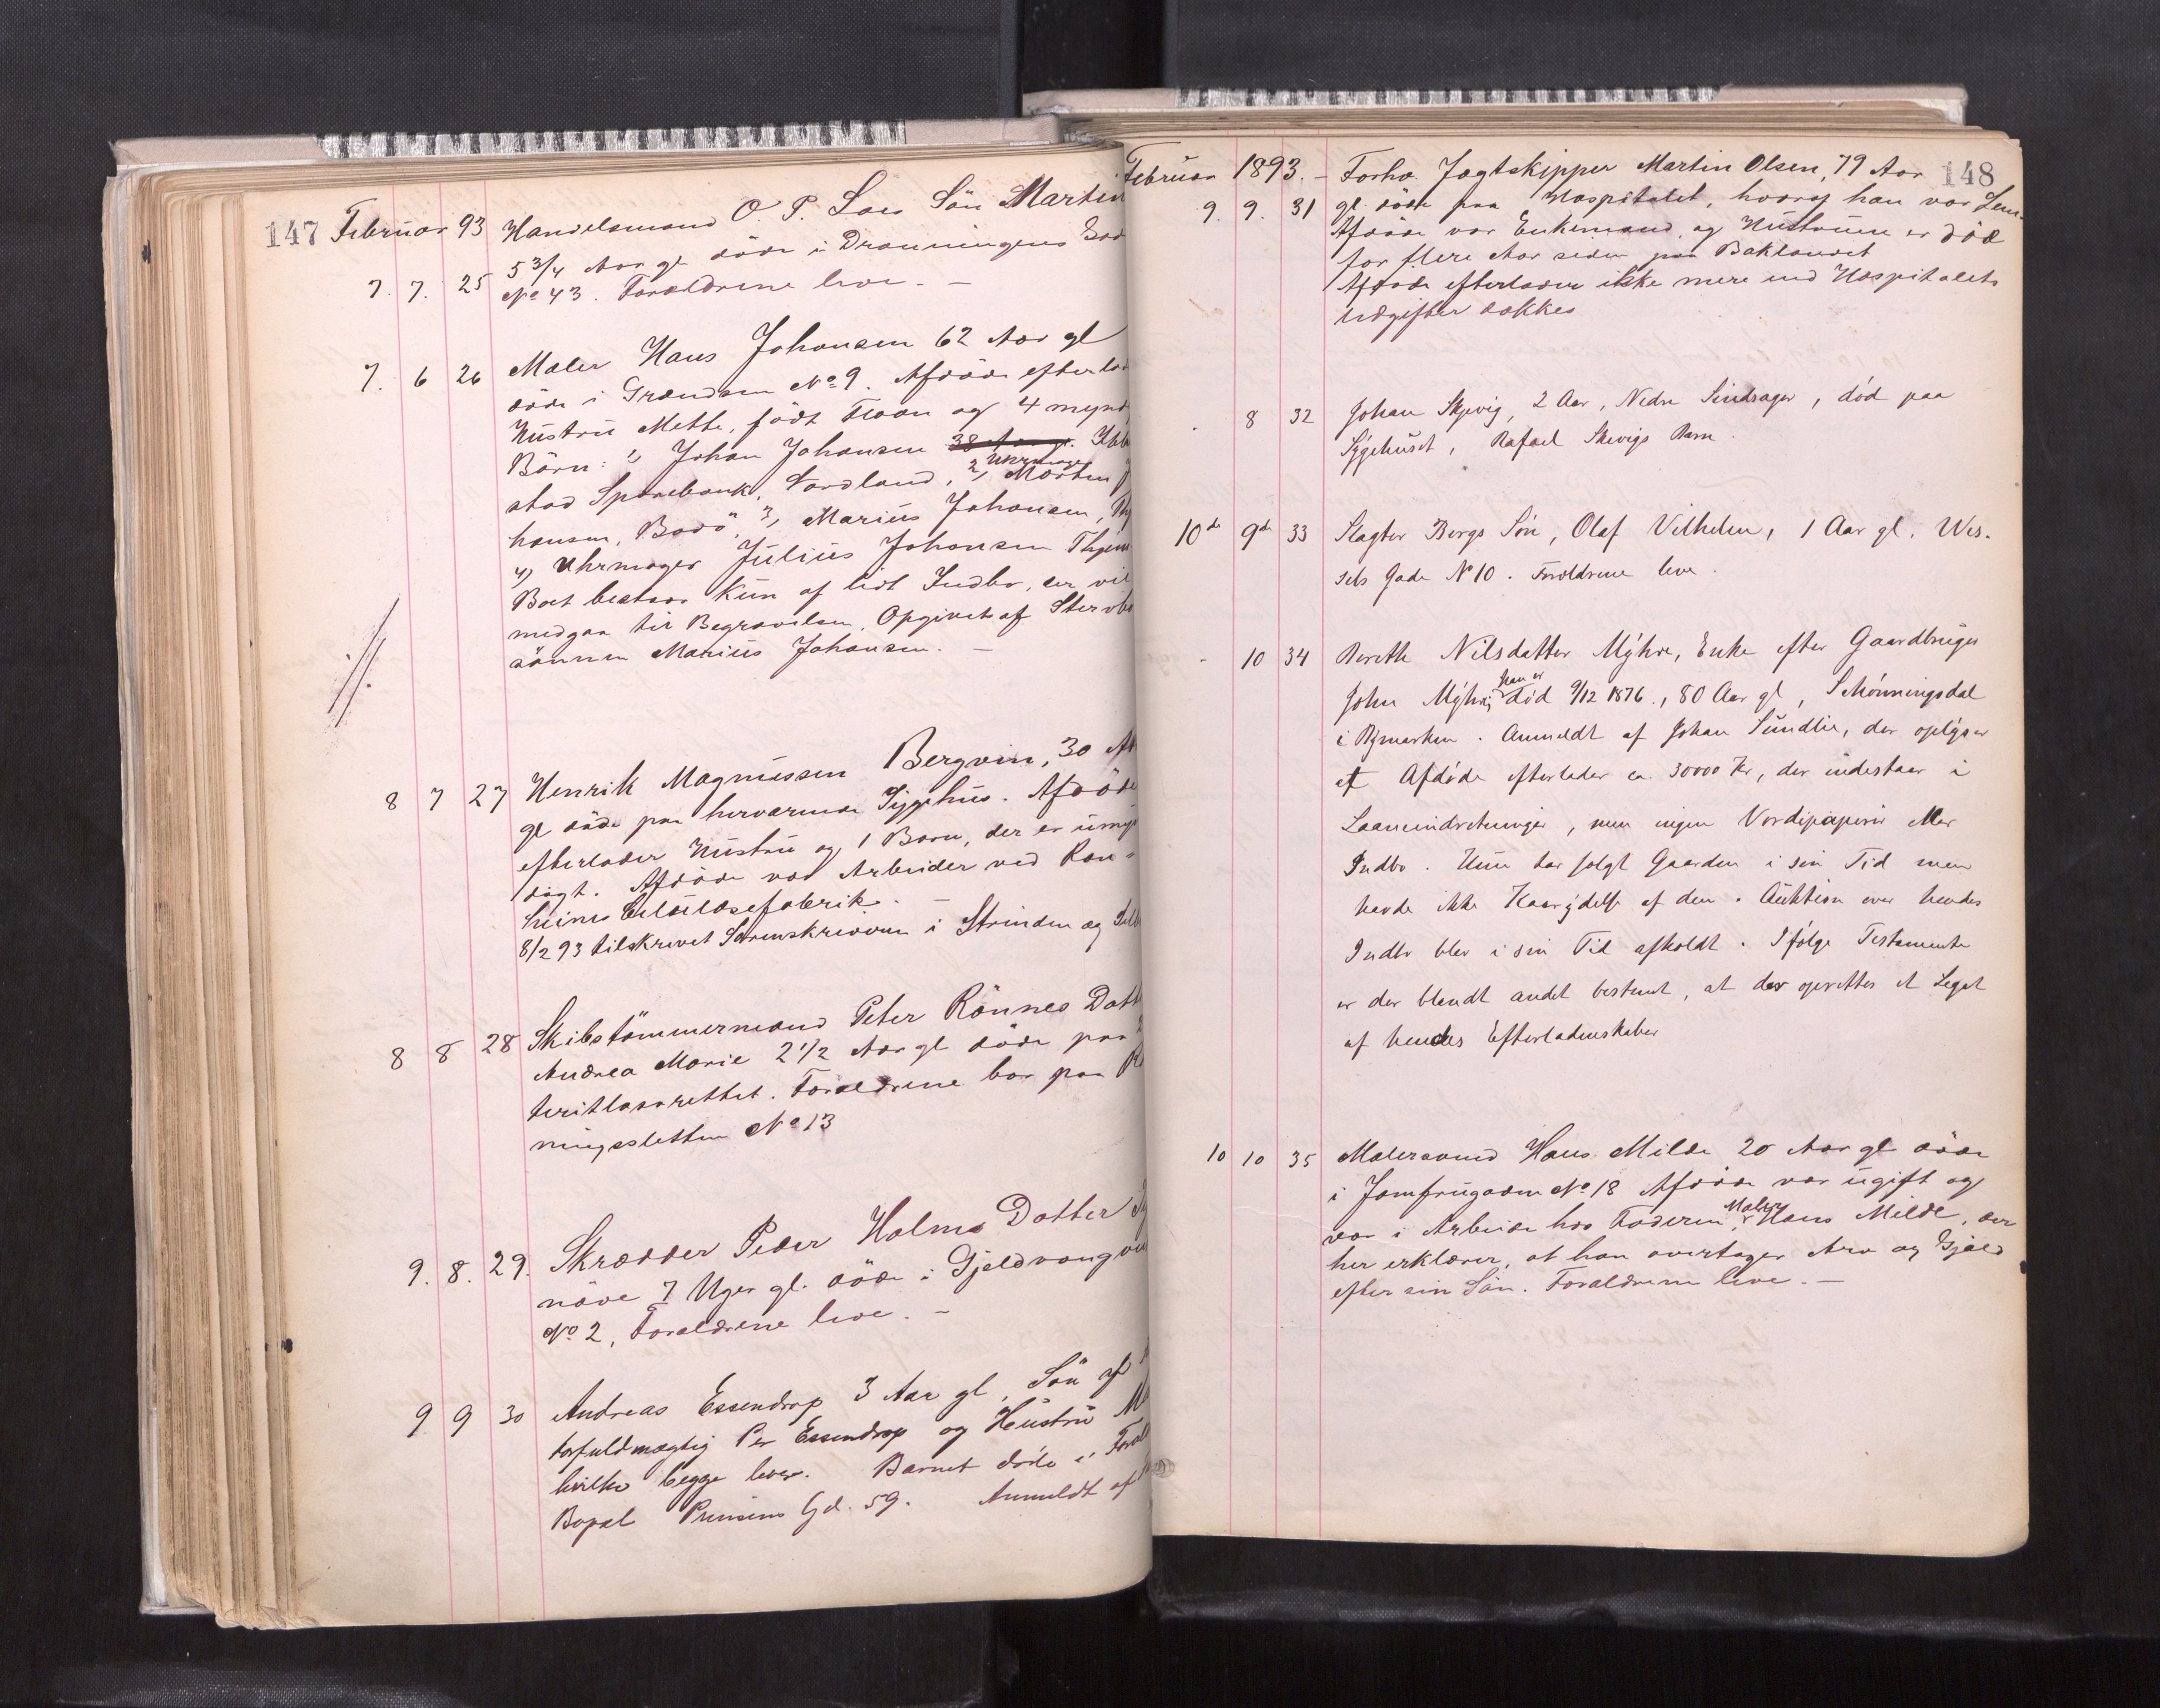 147 Februar 93 Handelsmand O. P. Laes Sön Martin
5 3/4 Aar gl döde i Dronningens
7. 7. 25 No 43. Forældrene leve. —
7. 6 26 Maler Hans Johansen 62 Aar gl
döde i Grændsen No 9. Afdöde efterlod
Hustru Mette, födt Floan og 4 mynd
Börn: 1, Johan Johansen 38 Aar gl.
stad Sparebank, Nordland, 2, Uhrmager Morten
hansen, Bodö, 3, Marius Johansen,
4, Uhrmager Julius Johansen
Boet bestaar kun af lidt Indbo, der vil
medgaa til Begravelsen. Opgivet af Stervbo
sönnen Marius Johansen. —
8 7 27 Henrik Magnussen Bergvin, 30
gl döde paa herværende Sygehus. Afdöde
efterlader Hustru og 1 Barn, der er umyn
digt. Afdöde var Arbeider ved Ran=
heims Celulosefabrik. —
8/2 93 tilskrevet Sorenskriveren i Strinden og
8 8 28 Skibstömmermand Peter Rönnes Datt
Andrea Marie 2 1/2 Aar gl döde paa
teritlasarettet. Forældrene bor paa
ningsletten No 13
9. 8. 29. Skrædder Peder Holms Datter
növe 7 Uger gl. döde i Gjeldvang
No 2, Forældrene leve. —
9 9 30 Andreas Essendrop 3 Aar gl, Sön af
torfuldmægtig Per Essendrop og Hustru
hvilke begge lever. Barnet döde i
Bopæl Prinsens Gd. 59. Anmeldt af
Februar 1893. — Forhv. Jagtskipper Martin Olsen, 79 Aar 148
9. 9. 31 gl. döde paa Hospitalet, hvoraf han var Lem
Afdöde var Enkemand, og Hustruen er död
for flere Aar siden paa Baklandet
Afdöde efterlader ikke mere end Hospitalets
Udgifter dækkes
8 32 Johan Skjevig, 2 Aar, Nedre Sindsager, död paa
Sygehuset, Rafael Skevigs Barn.
10de 9de 33 Slagter Bergs Sön, Olaf Vilhelm, 1 Aar gl. Wes.
sels Gade No 10. Forældrene leve.
- 10 34 Bereth Nilsdatter Myhre, Enke efter Gaardbruger
John Myhre, han er död 9/12 1876., 80 Aar gl, Schönningsdal
i Bymarken. Anmeldt af Johan Sundlie, der oplyser
at Afdöde efterlader ca. 30000 Kr, der indestaar i
Laaneindretninger, men ingen Verdipapirer eller
Indbo. Hun har solgt Gaarden i sin Tid men
havde ikke Kaarydelse af den. Auktion over hendes
Indbo blev i sin Tid afholdt. Ifölge Testamente
er der blandt andet bestemt, at der oprettes et Legat
af hendes Efterladenskaber
10 10 35 Malersvend Hans Milde 20 Aar gl döde
i Jomfrugaden No 18 Afdöde var ugift og
var i Arbeide hos Faderen, Maler Hans Milde, der
her erklærer, at han overtager Arv og Gjæld
efter sin Sön. Forældrene leve. —